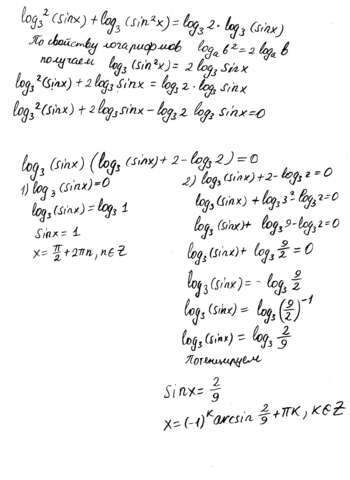 log₃²(sinx)+log₃(sin²x)=log₃2·log₃(sinx)
По свойству логарифмов logₐb²=2logₐb
получаем log₃(sin²x)=2log₃sinx
log₃²(sinx)+2log₃sinx=log₃2·log₃sinx
log₃²(sinx)+2log₃sinx-log₃2 log₃sinx=0
log₃(sinx)(log₃(sinx)+2-log₃2)=0
1) log₃(sinx)=0
log₃(sinx)=log₃1
sinx=1
x=π/2+2πn, n∈Z
2) log₃(sinx)+2-log₃2=0
log₃(sinx)+log₃3²-log₃2=0
log₃(sinx)+log₃9-log₃2=0
log₃(sinx)+log₃9/2=0
log₃(sinx)=-log₃9/2
log₃(sinx)=log₃(9/2)⁻¹
log₃(sinx)=log₃2/9
Потенцируем
sinx=2/9
x=(-1)ᵏarcsin2/9+πK, K∈Z